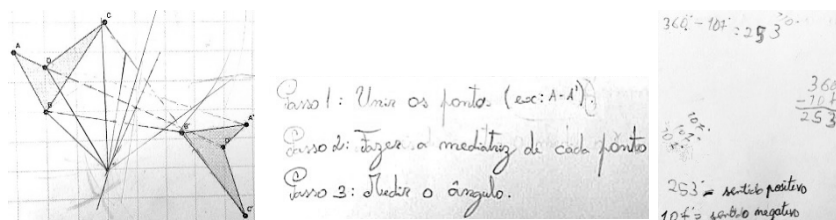 A
C
D
B
B'
A'
D'
C'
Passo 1: Unir os ponto (ex: A-A').
Passo 2: Fazer a mediatriz de cada ponto
Passo 3: Medir o ângulo.
360° - 107° = 253°
360
-107
253
253° = sentido positivo
107° = sentido negativo